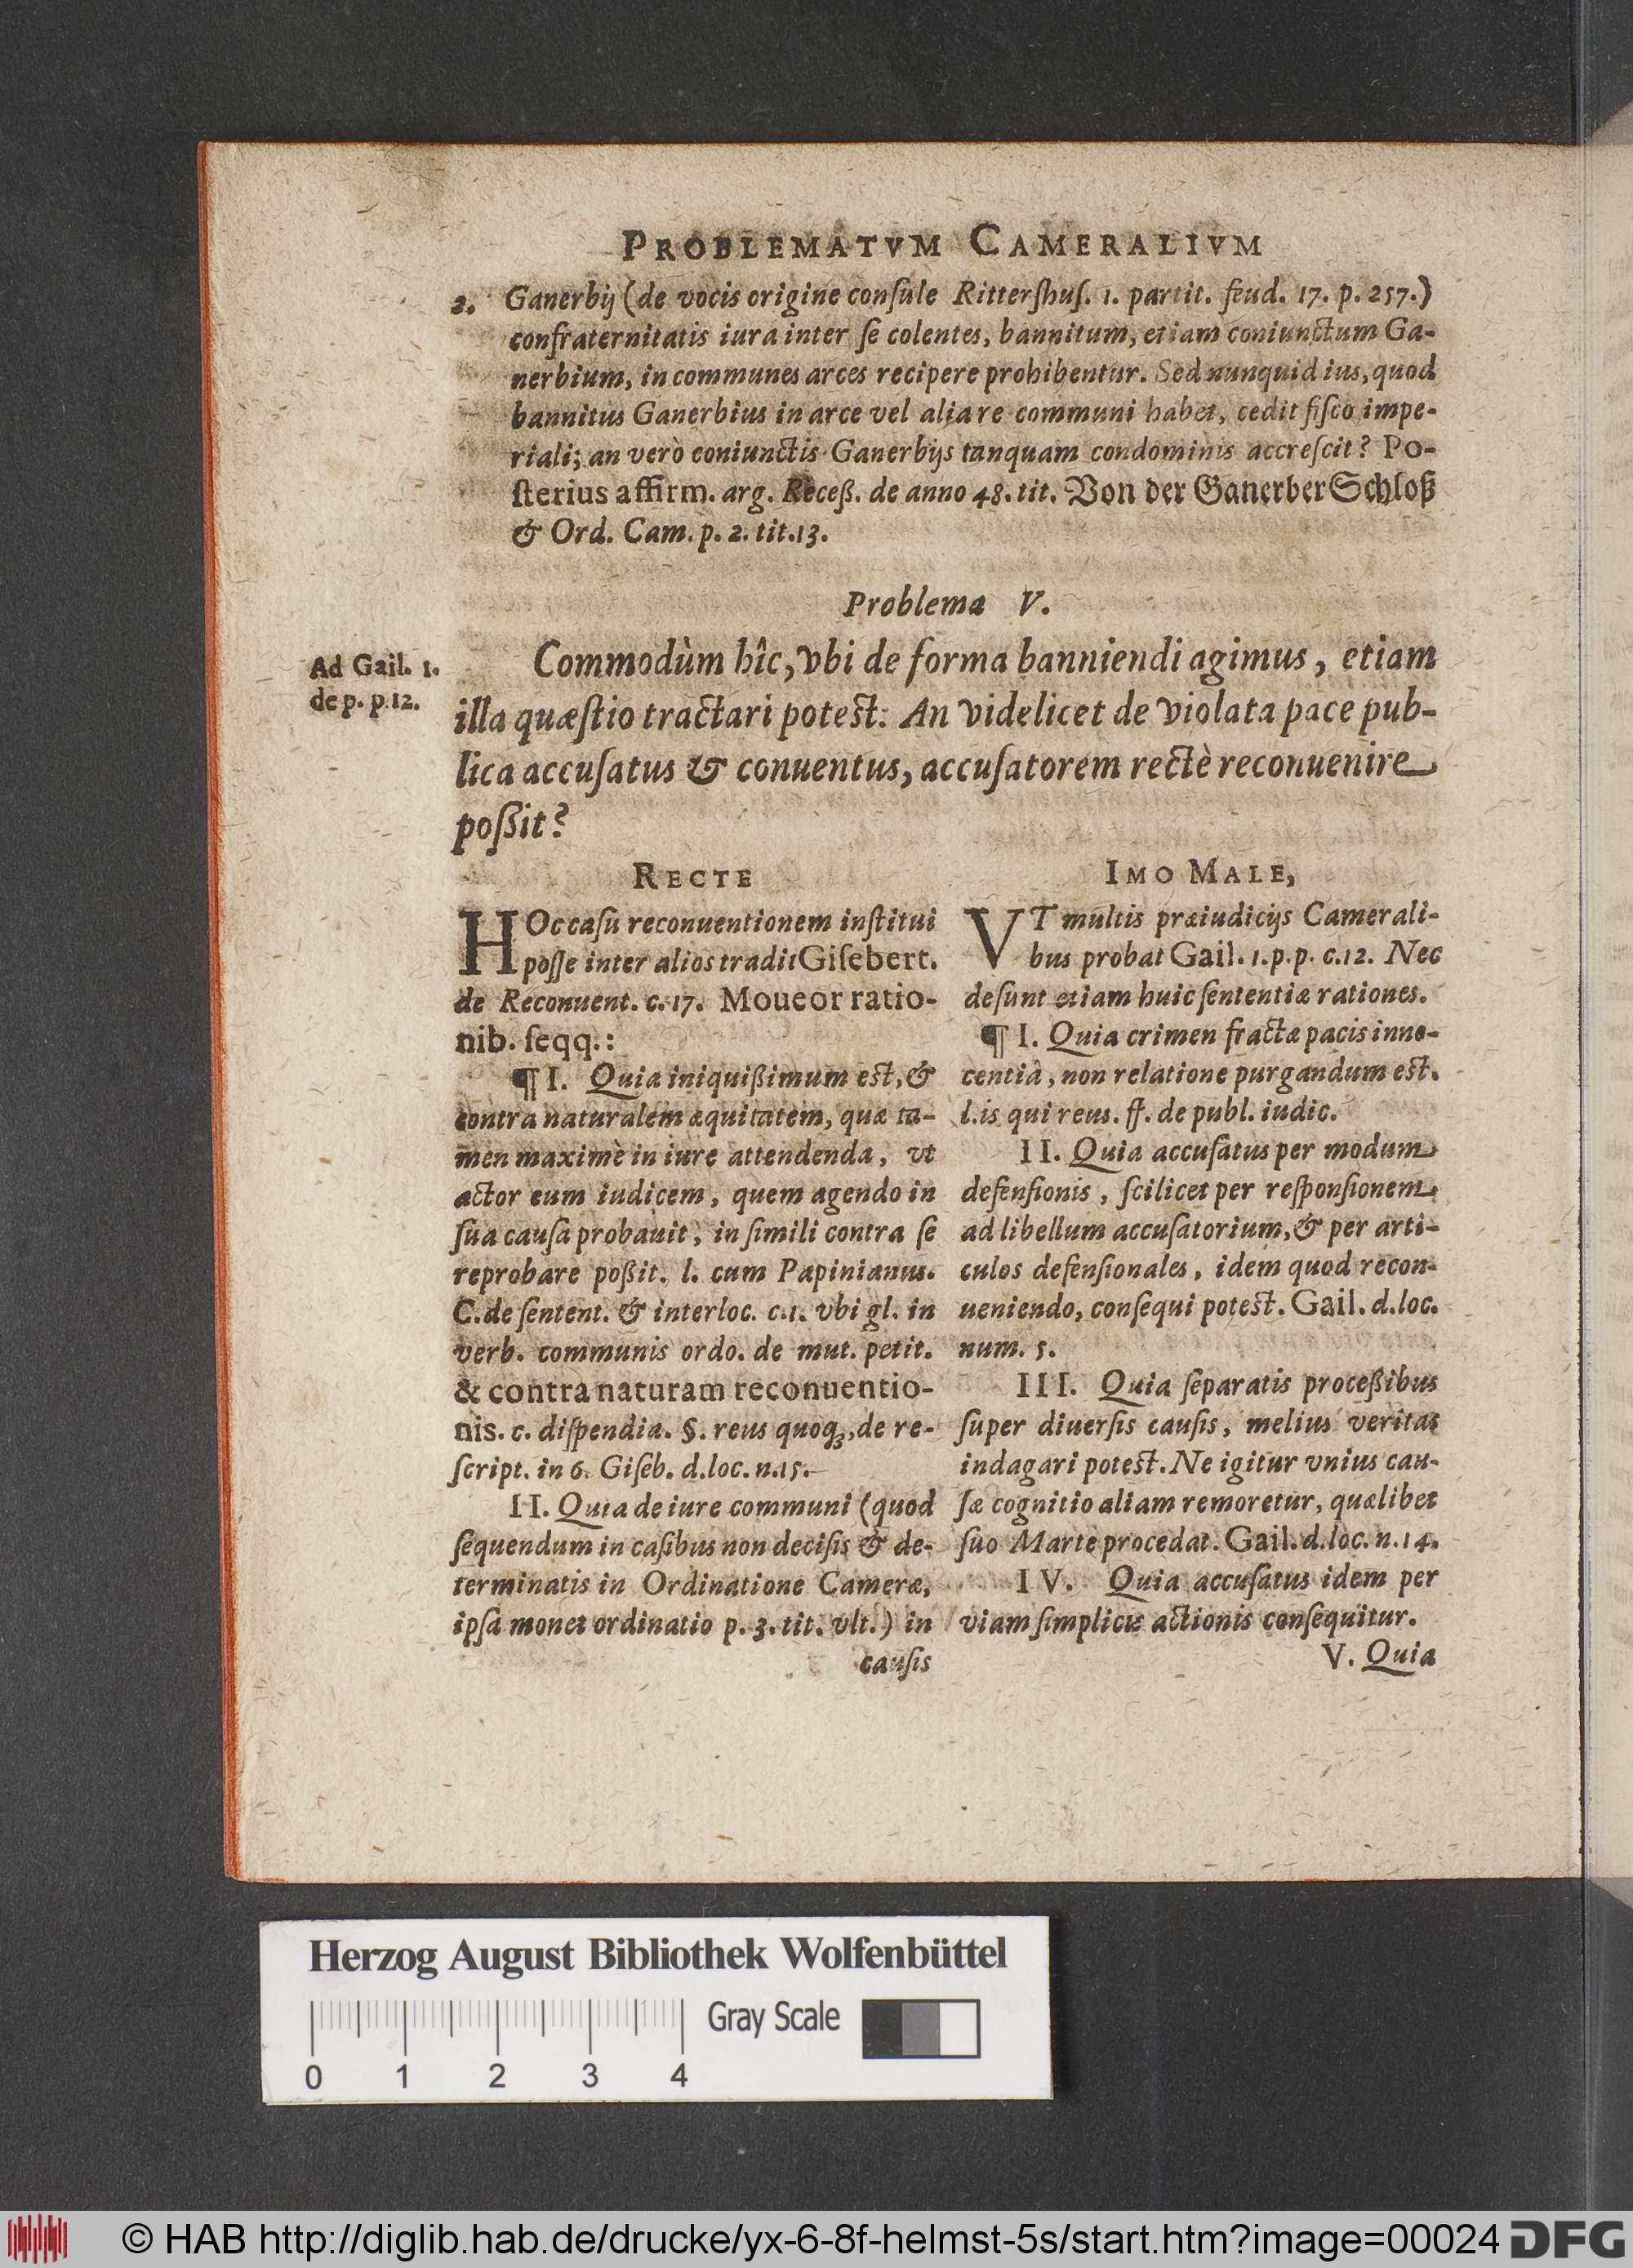 PROBLEMATVM CAMERALIVM
2. Ganerbij (de vocis origine conſule Ritterſhuſ. 1. partit. feud. 17. p. 257.)
confraternitatis iura inter ſe colentes, bannitum, etiam coniunctum Ga-
nerbium, in communes arces recipere prohibentur. Sed nunquid ius, quod
bannitus Ganerbius in arce vel alia re communi habet, cedit fiſco impe-
riali; an verò coniunctis Ganerbijs tanquam condominis accreſcit? Po-
ſterius affirm. arg. Receß. de anno 48. tit. Von der Ganerber Schloß
& Ord. Cam. p. 2. tit. 13.
Problema V.
Ad Gail. 1.
de p. p. 12.
Commodùm hîc, vbi de forma banniendi agimus, etiam
illa quæſtio tractari poteſt: An videlicet de violata pace pub-
lica accuſatus & conuentus, accuſatorem rectè reconuenire
poßit?
RECTE
HOc caſu reconuentionem inſtitui
poſſe inter alios tradit Giſebert.
de Reconuent. c. 17. Moueor ratio-
nib. ſeqq.:
¶ I. Quia iniquißimum eſt, &
contra naturalem æquitatem, quæ ta-
men maximè in iure attendenda, vt
actor eum iudicem, quem agendo in
ſua cauſa probauit, in ſimili contra ſe
reprobare poßit. l. cum Papinianus.
C. de ſentent. & interloc. c. 1. vbi gl. in
verb. communis ordo. de mut. petit.
& contra naturam reconuentio-
nis. c. diſpendia. §. reus quoqꝫ, de re-
ſcript. in 6. Giſeb. d. loc. n. 15.
II. Quia de iure communi (quod
ſequendum in caſibus non deciſis & de-
terminatis in Ordinatione Cameræ,
ipſa monet ordinatio p. 3. tit. vlt.) in
cauſis
IMO MALE,
VT multis præiudicijs Camerali-
bus probat Gail. 1. p. p. c. 12. Nec
deſunt etiam huic ſententiæ rationes.
¶ I. Quia crimen fractæ pacis inno-
centiâ, non relatione purgandum eſt.
l. is qui reus. ff. de publ. iudic.
II. Quia accuſatus per modum
defenſionis, ſcilicet per reſponſionem
ad libellum accuſatorium, & per arti-
culos defenſionales, idem quod recon-
ueniendo, conſequi poteſt. Gail. d. loc.
num. 5.
III. Quia ſeparatis proceßibus
ſuper diuerſis cauſis, melius veritas
indagari poteſt. Ne igitur vnius cau-
ſæ cognitio aliam remoretur, quælibet
ſuo Marte procedat. Gail. d. loc. n. 14.
IV. Quia accuſatus idem per
viam ſimplicis actionis conſequitur.
V. Quia
Herzog August Bibliothek Wolfenbüttel
Gray Scale
0 1 2 3 4
© HAB http://diglib.hab.de/drucke/yx-6-8f-helmst-5s/start.htm?image=00024 DFG